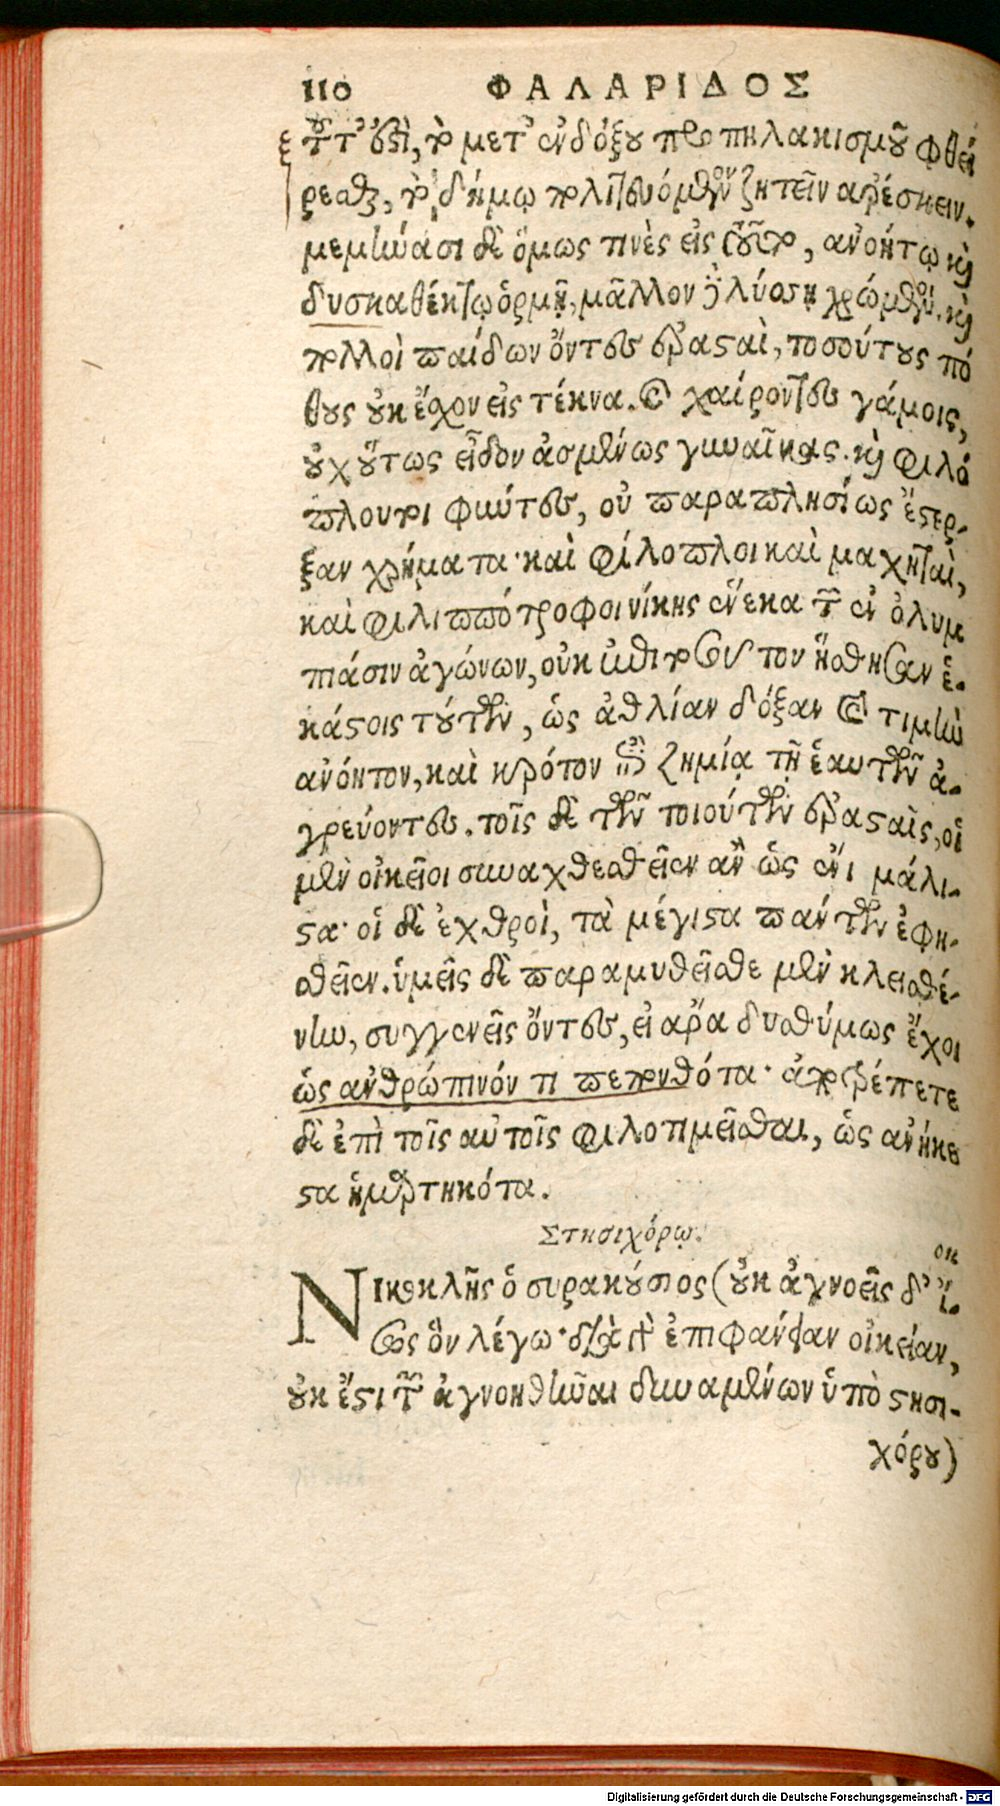 110 ΦΑΛΑΡΙΔΟΣ
τοῦτ' ἔστι, τὸ μετ' ἐνδόξου προπηλακισμοῦ φθεί
ρεσθαι, τὸ δήμῳ πολιτευόμενον ζητεῖν ἀρέσκειν.
μεμήνασι δὲ ὅμως τινὲς εἰς τοῦτο, ἀνοήτῳ καὶ
δυσκαθέκτῳ ὁρμῇ, μᾶλλον δὲ λύσσῃ χρώμενοι. καὶ
πολλοὶ παίδων ὄντες ἐρασταὶ, τοσούτους πό
θους οὐκ ἔσχον εἰς τέκνα. καὶ χαίροντες γάμοις,
οὐχ οὕτως εἶδον ἀσμένως γυναῖκας. καὶ φιλό
πλουτοι φύντες, οὐ παραπλησίως ἔστερ-
ξαν χρήματα· καὶ φίλοπλοι καὶ μαχηταὶ,
καὶ φιλιπποτρόφοι νίκης ἕνεκα τῶν ἐν ὀλυμ
πιάσιν ἀγώνων, οὐκ ἐπὶ τοσοῦτον ἥσθησαν ἑ-
κάστοις τούτων, ὡς ἀθλίαν δόξαν καὶ τιμὴν
ἀνόητον, καὶ κρότον ἐπὶ ζημίᾳ τῇ ἑαυτῶν ἀ-
γρεύοντες. τοῖς δὲ τῶν τοιούτων ἐρασταῖς, οἱ
μὲν οἰκεῖοι συναχθεσθεῖεν ἂν ὡς ἔνι μάλι-
στα· οἱ δὲ ἐχθροὶ, τὰ μέγιστα πάντων ἐφη-
σθεῖεν. ὑμεῖς δὲ παραμυθεῖσθε μὲν κλεισθέ-
νην, συγγενεῖς ὄντες, εἰ ἄρα δυσθύμως ἔχοι
ὡς ἀνθρώπινόν τι πεπονθότα· ἀποτρέπετε
δὲ ἐπὶ τοῖς αὐτοῖς φιλοτιμεῖσθαι, ὡς ἀνήκε
στα ἡμαρτηκότα.
Στησιχόρῳ.
οκ
ΝΙκοκλῆς ὁ συρακούσιος (οὐκ ἀγνοεῖς δ' ἴ-
σως ὃν λέγω· διὰ γὰρ ἐπιφανείαν οἰκείαν,
οὐκ ἔστι τῶν ἀγνοηθῆναι δυναμένων ὑπὸ στησι-
χόρου)
Digitalisierung gefördert durch die Deutsche Forschungsgemeinschaft - DFG